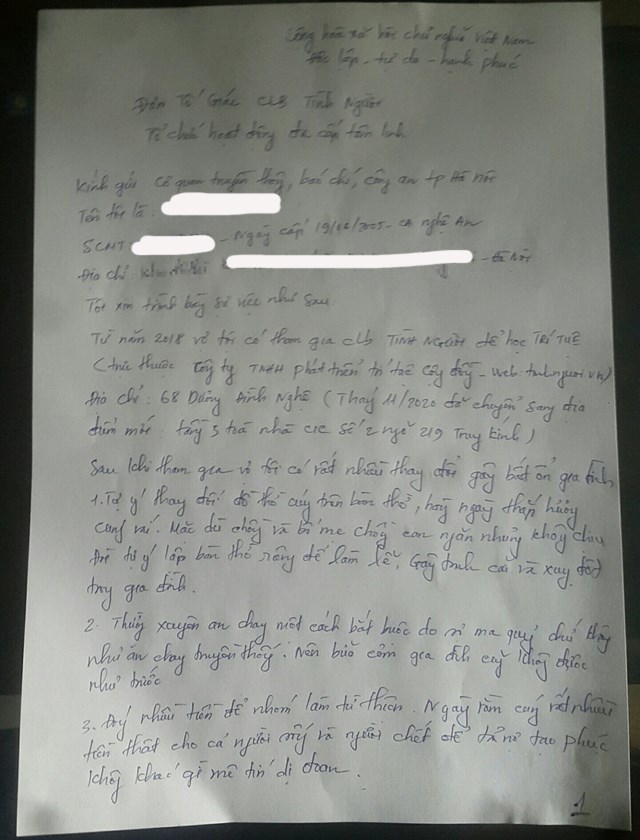 Cộng hòa xã hội chủ nghĩa Việt Nam
Độc lập - tự do - hạnh phúc
Đơn Tố Giác CLB Tình Người
Tổ chức hoạt động đa cấp tâm linh
Kính gửi cơ quan truyền thông, báo chí, công an tp Hà Nội
Tên tôi là:
SCMT - Ngày cấp 19/06/2005 - CA nghệ An
Địa chỉ: - Hà Nội
Tôi xin trình bày sự việc như sau
Từ năm 2018 vợ tôi có tham gia clb TÌNH NGƯỜI để học TRÍ TUỆ
(trực thuộc công ty TNHH phát triển trí tuệ cộng đồng - Web: tinhnguoi.vn)
Địa chỉ: 68 Dương Đình Nghệ (Tháng 11/2020 đã chuyển sang địa
điểm mới: tầng 5 toà nhà CIC số 2 ngõ 219 Trung kính)
Sau khi tham gia vợ tôi có rất nhiều thay đổi gây bất ổn gia đình
1. Tự ý thay đổi đồ thờ cúng trên bàn thờ, hàng ngày thắp hương
cúng vái. Mặc dù chồng và bố mẹ chồng can ngăn nhưng không chịu
tự ý lập bàn thờ riêng để làm lễ, Gây tranh cãi và xung đột
trong gia đình.
2. Thường xuyên ăn chay một cách bắt buộc do sợ ma quỷ chứ không
như ăn chay truyền thống. Nên bữa cơm gia đình cũng không được
như trước
3. nhiều tiền để nhóm làm từ thiện. Ngày rằm cúng rất nhiều
tiền thật cho cả người sống và người chết để trả nợ tạo phúc
không khác gì mê tín dị đoan.
1